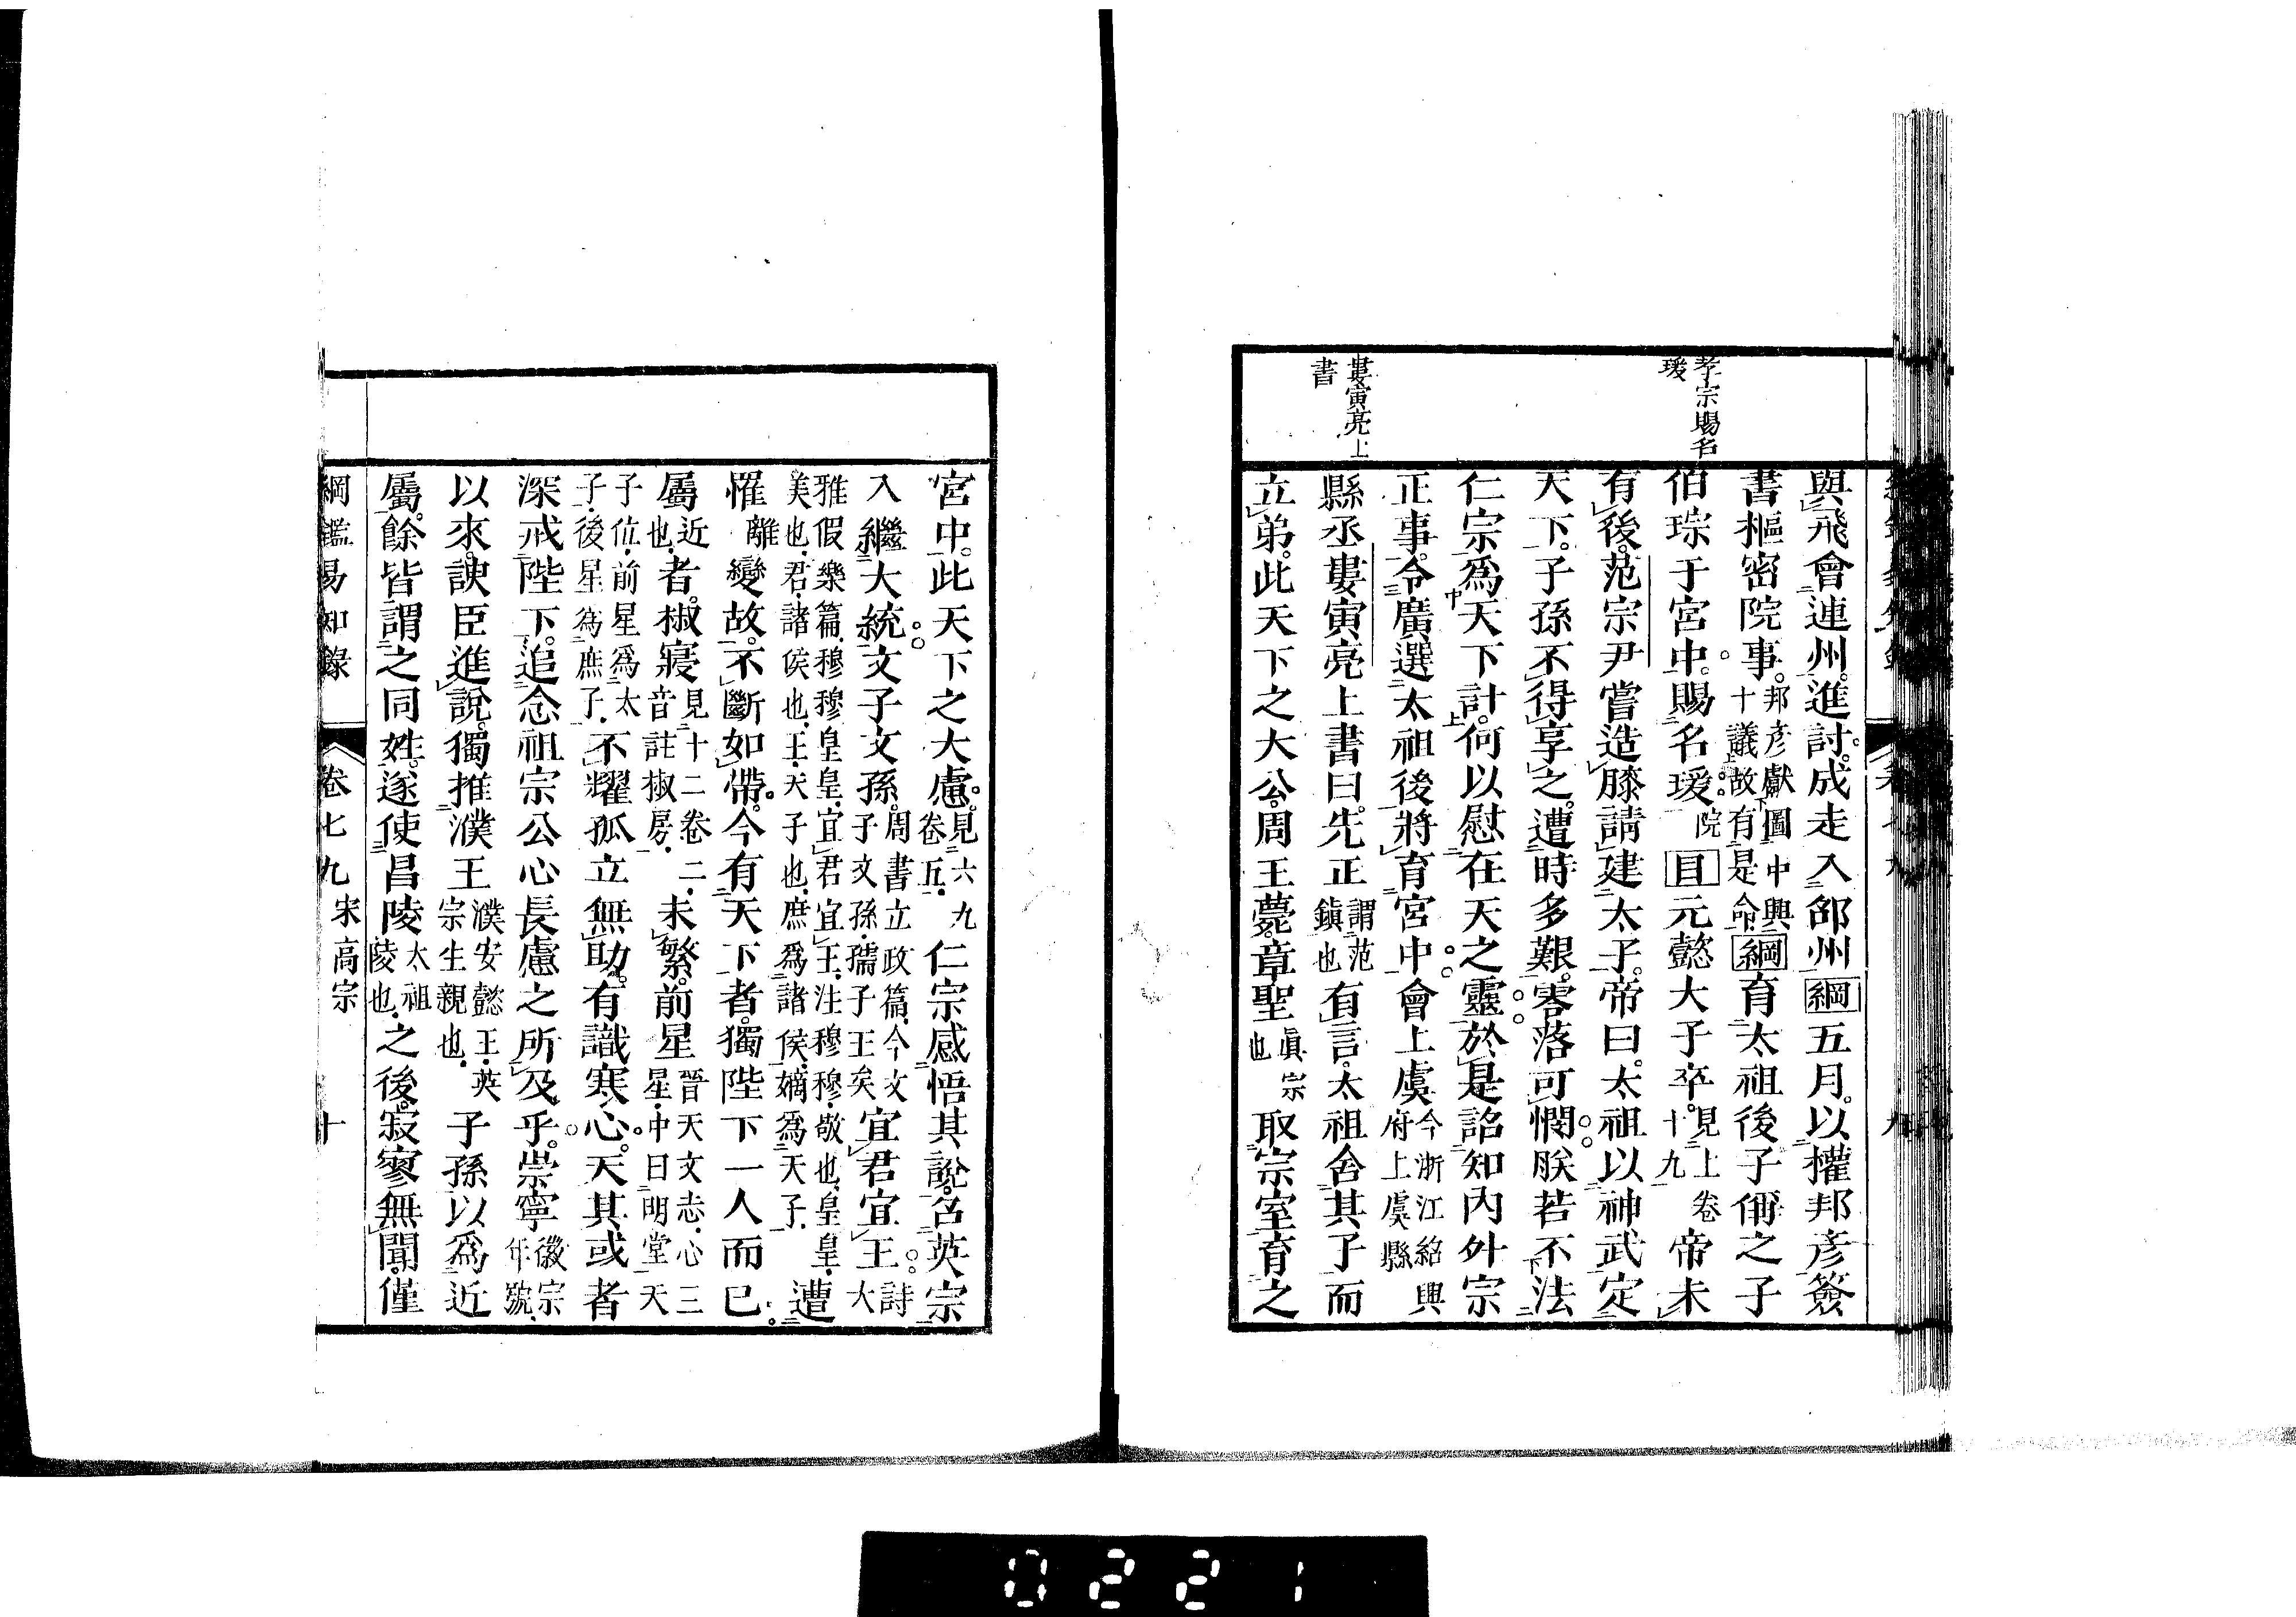 孝宗賜名
瑗
婁寅亮上
書
與飛會連州。進討。成走入邵州綱五月。以權邦彥簽
書樞密院事。邦彥獻圖中興十議故有是命。綱育太祖後子偁之子
伯琮于宮中。賜名瑗。院目元懿大子卒。見上卷十九帝未
有後。范宗尹嘗造膝請建太子。帝曰。太祖以神武定
天下。子孫不得享之。遭時多艱。零落可憫。朕若不法
仁宗。爲天下計。何以慰在天之靈。於是詔知內外宗
正事。令廣選太祖後。將育宮中。會上虞今浙江紹興府上虞縣
縣丞婁寅亮上書曰。先正謂范鎮也有言。太祖舍其子而
立弟。此天下之大公。周王薨。章聖眞宗也取宗室育之
宮中。此天下之大慮。見六九卷五。仁宗感悟其說。召英宗
入繼大統。文子文孫。周書立政篇。今文子文孫。孺子王矣宜君宜王。詩大
雅假樂篇。穆穆皇皇。宜君宜王。注穆穆。敬也。皇皇。美也。君。諸侯也。王。天子也。庶爲諸侯。嫡爲天子。遭
罹離變故。不斷如帶。今有天下者。獨陛下一人而已。
屬近也。者。椒寢見十二卷二。音註椒房。未繁。前星晉天文志。心三星。中曰明堂。天
子位。前星爲太子。後星爲庶子。不耀。孤立無助。有識寒心。天其或者
深戒陛下。追念祖宗公心長慮之所及乎。崇寧徽宗年號。
以來。諛臣進說。獨推濮王濮安懿王。英宗生親也。子孫以爲近
屬。餘皆謂之同姓。遂使昌陵太祖陵也。之後。寂寥無聞。僅
綱鑑易知錄 卷七九 宋高宗 十
0221